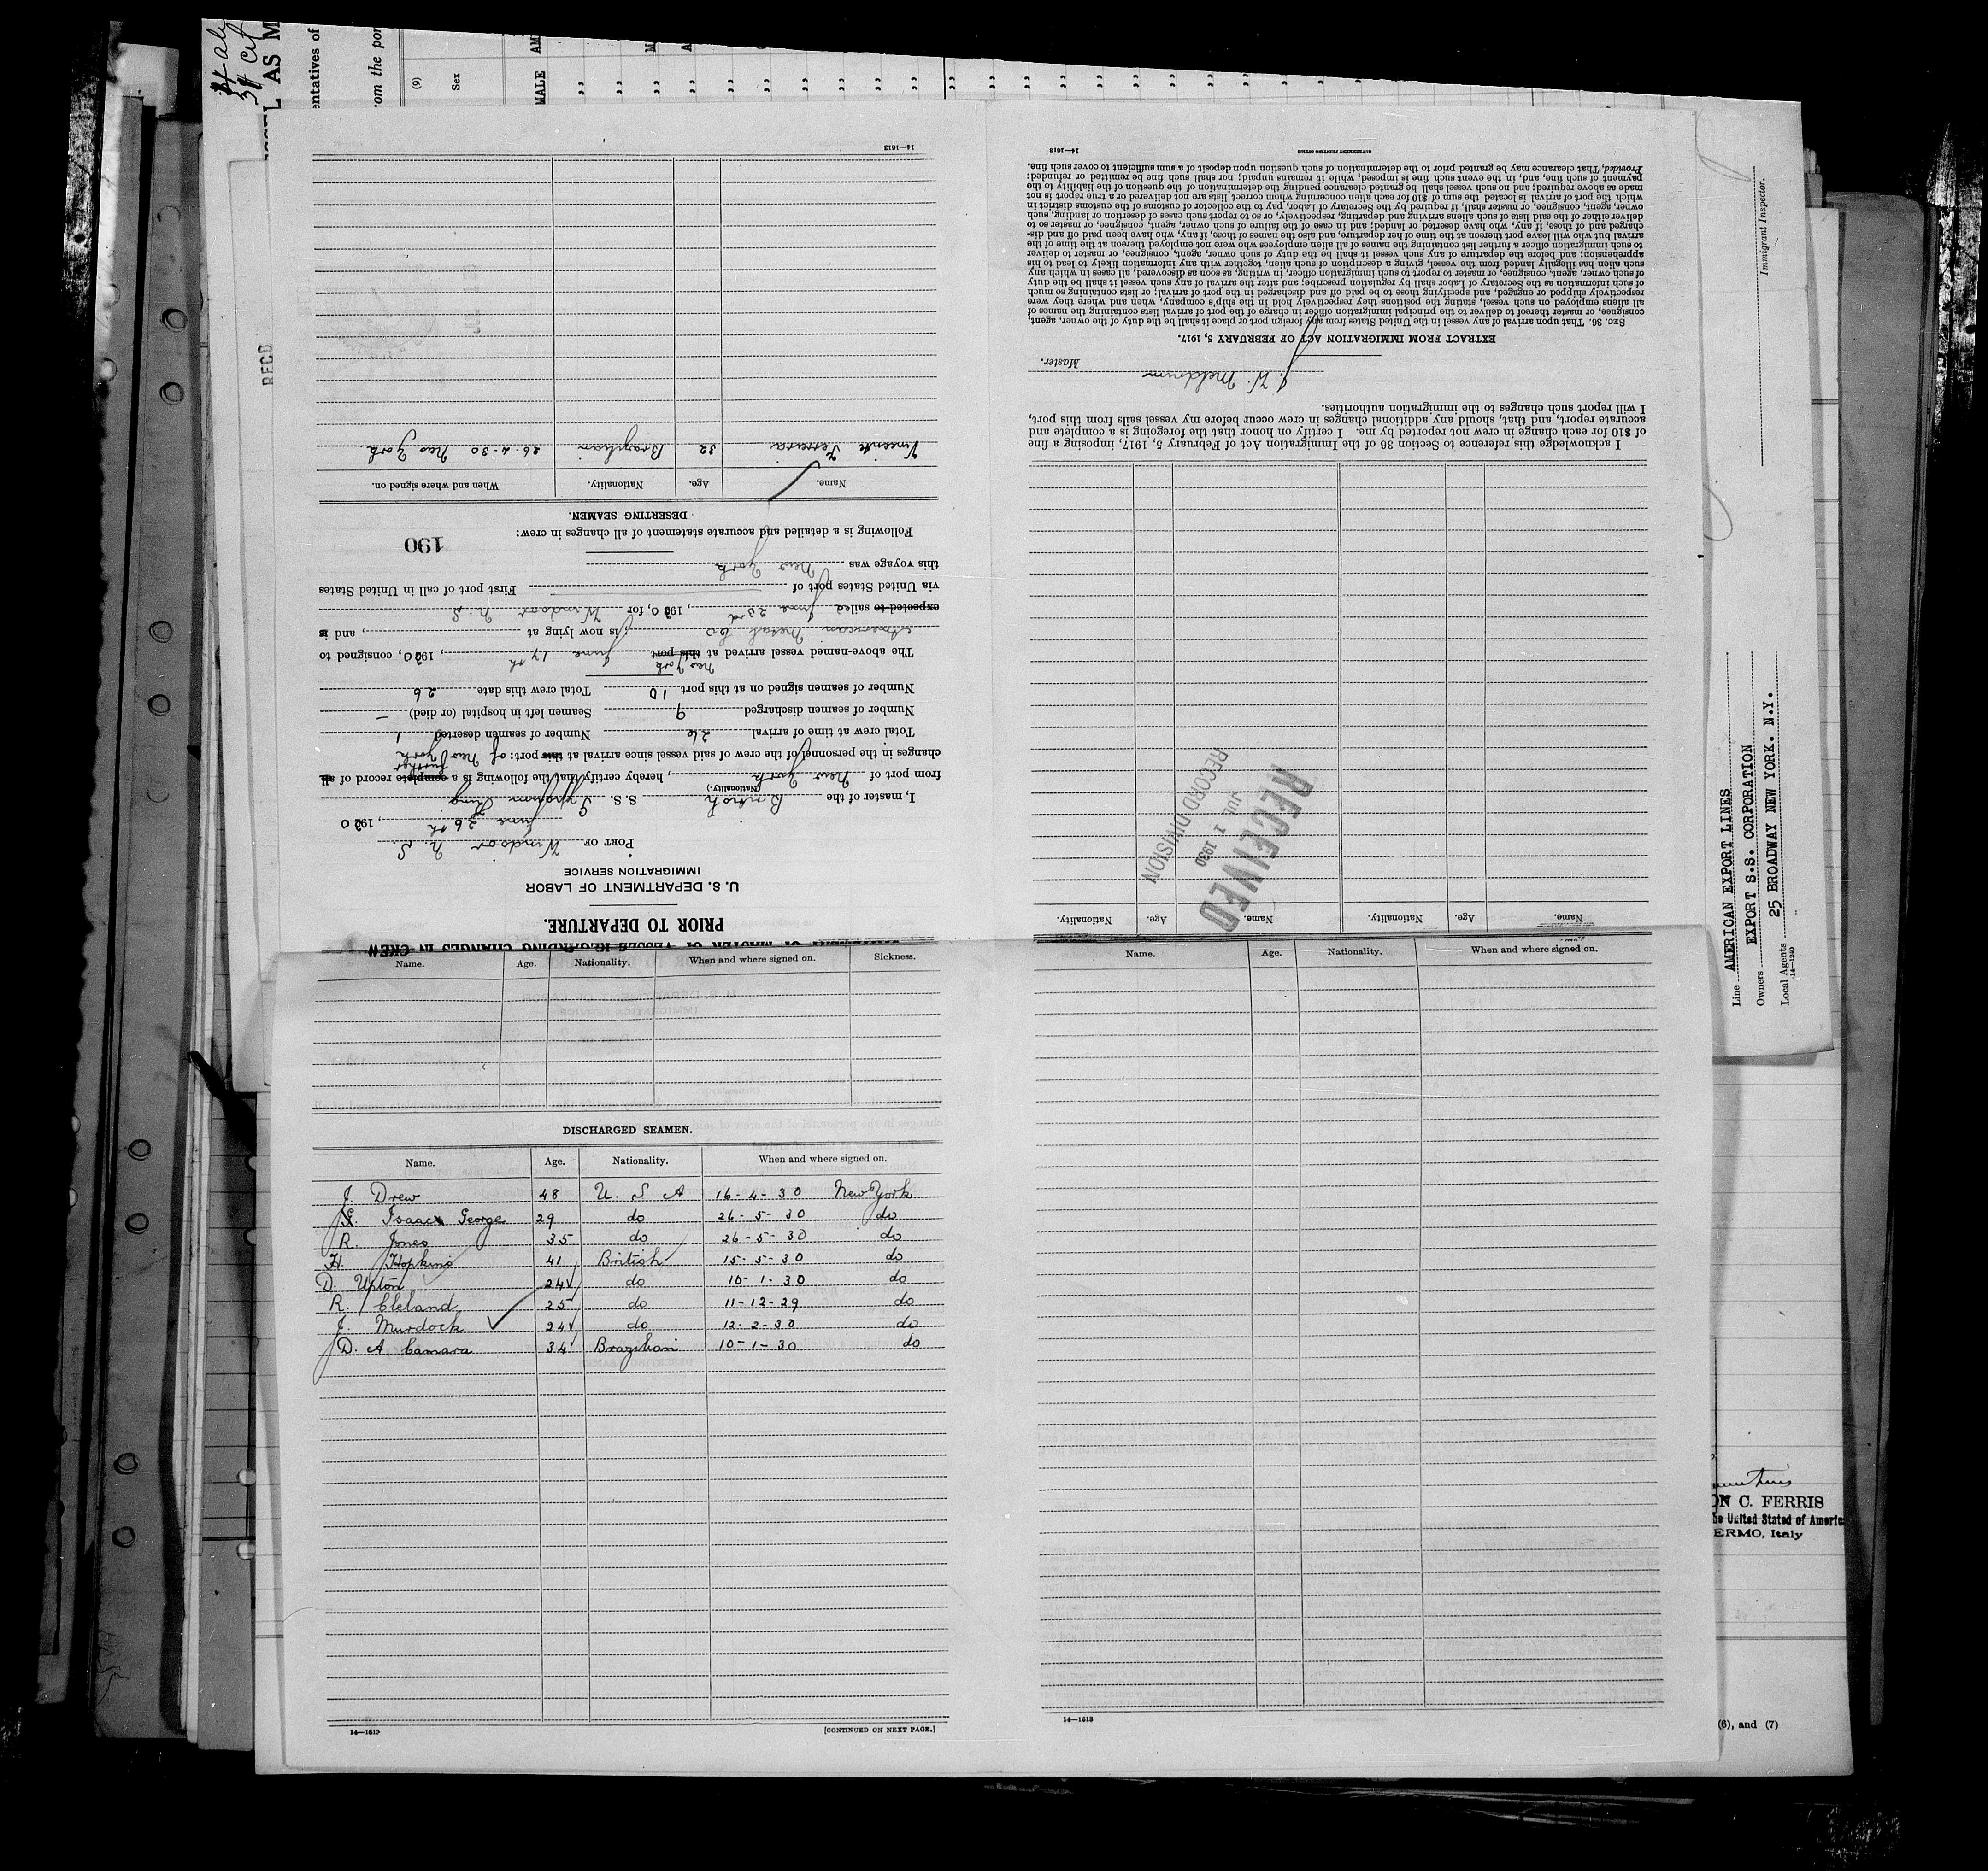 14—1613
Name. Age. Nationality. When and where signed on.
Vincente Ferreira 32 Brazilian 26-4-30 New York
DESERTING SEAMEN.
Following is a detailed and accurate statement of all changes in crew:
190
this voyage was New York
via United States port of First port of call in United States
expected to sailed June 23rd, 1930, for Windsor N.S.
American Metal Co; is now lying at , and is
The above-named vessel arrived at this port New York June 17th, 1930, consigned to
Number of seamen signed on at this port 10 Total crew this date 26
Number of seamen discharged 9 Seamen left in hospital (or died) —
Total crew at time of arrival 26 Number of seamen deserted 1
changes in the personnel of the crew of said vessel since arrival at this port: of New York
from port of New York, hereby certify that the following is a complete further record of all
I, master of the British (Nationality.) S.S. King
June 26th, 1930
PORT OF Windsor N.S.
IMMIGRATION SERVICE
U. S. DEPARTMENT OF LABOR
PRIOR TO DEPARTURE.
OF MASTER OF VESSEL REGARDING CHANGES IN CREW
14—1613
GOVERNMENT PRINTING OFFICE
EXTRACT FROM IMMIGRATION ACT OF FEBRUARY 5, 1917.
SEC. 36. That upon arrival of any vessel in the United States from any foreign port or place it shall be the duty of the owner, agent,
consignee, or master thereof to deliver to the principal immigration officer in charge of the port of arrival lists containing the names of
all aliens employed on such vessel, stating the positions they respectively hold in the ship's company, when and where they were
respectively shipped or engaged, and specifying those to be paid off and discharged in the port of arrival; or lists containing so much
of such information as the Secretary of Labor shall by regulation prescribe; and after the arrival of any such vessel it shall be the duty
of such owner, agent, consignee, or master to report to such immigration officer, in writing, as soon as discovered, all cases in which any
such alien has illegally landed from the vessel, giving a description of such alien, together with any information likely to lead to his
apprehension; and before the departure of any such vessel it shall be the duty of such owner, agent, consignee, or master to deliver
to such immigration officer a further list containing the names of all alien employees who were not employed thereon at the time of the
arrival but who will leave port thereon at the time of her departure, and also the names of those, if any, who have been paid off and dis-
charged and of those, if any, who have deserted or landed; and in case of the failure of such owner, agent, consignee, or master so to
deliver either of the said lists of such aliens arriving and departing, respectively, or so to report such cases of desertion or landing, such
owner, agent, consignee, or master, shall, if required by the Secretary of Labor, pay to the collector of customs of the customs district in
which the port of arrival is located the sum of $10 for each alien concerning whom correct lists are not delivered or a true report is not
made as above required; and no such vessel shall be granted clearance pending the determination of the question of the liability to the
payment of such fine, and, in the event such fine is imposed, while it remains unpaid; nor shall such fine be remitted or refunded:
Provided, That clearance may be granted prior to the determination of such question upon deposit of a sum sufficient to cover such fine.
J. W. Meldrum Master.
I acknowledge this reference to Section 36 of the Immigration Act of February 5, 1917, imposing a fine
of $10 for each change in crew not reported by me. I certify on honor that the foregoing is a complete and
accurate report, and that, should any additional changes in crew occur before my vessel sails from this port,
I will report such changes to the immigration authorities.
RECEIVED
JUL 1 1930
RECORD DIVISION
Name. Age. Nationality. Name. Age. Nationality.
Name. Age. Nationality. When and where signed on. Sickness.
DISCHARGED SEAMEN.
Name. Age. Nationality. When and where signed on.
J. Drew 48 U. S A 16-4-30 New York
Isaac George 29 do 26-5-30 do
R. Jones 35 do 26-5-30 do
H. Hopkins 41 British 15-5-30 do
D. Upton 24 do 10-1-30 do
R. Cleland 25 do 11-12-29 do
J. Murdock 24 do 12-2-30 do
D. A Camara 34 Brazilian 10-1-30 do
14—1613
[CONTINUED ON NEXT PAGE.]
Name. Age. Nationality. When and where signed on.
14—1613
entatives of
om the por
(9)
Sex
MALE
AS M
RECD
Immigrant Inspector.
Line AMERICAN EXPORT LINES
Owners EXPORT S.S. CORPORATION
Local Agents 25 BROADWAY NEW YORK. N.Y.
14—1240
ON C. FERRIS
he United Stated of Americ
ERMO, Italy
(6), and (7)